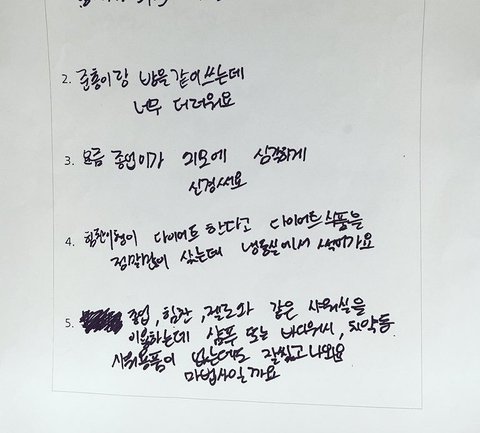 2. 준홍이랑 방을 같이 쓰는데
너무 더러워요
3. 요즘 종업이가 외모에 심각하게
신경써요
4. 힘찬이형이 다이어트 한다고 다이어트식품을
정말많이 샀는데 냉동실에서 썩어가요
5. 종업, 힘찬, 젤로와 같은 샤워실을
이용하는데 샴푸 또는 바디워시, 치약등
샤워용품이 없는데도 잘씻고나와요
마법사일까요